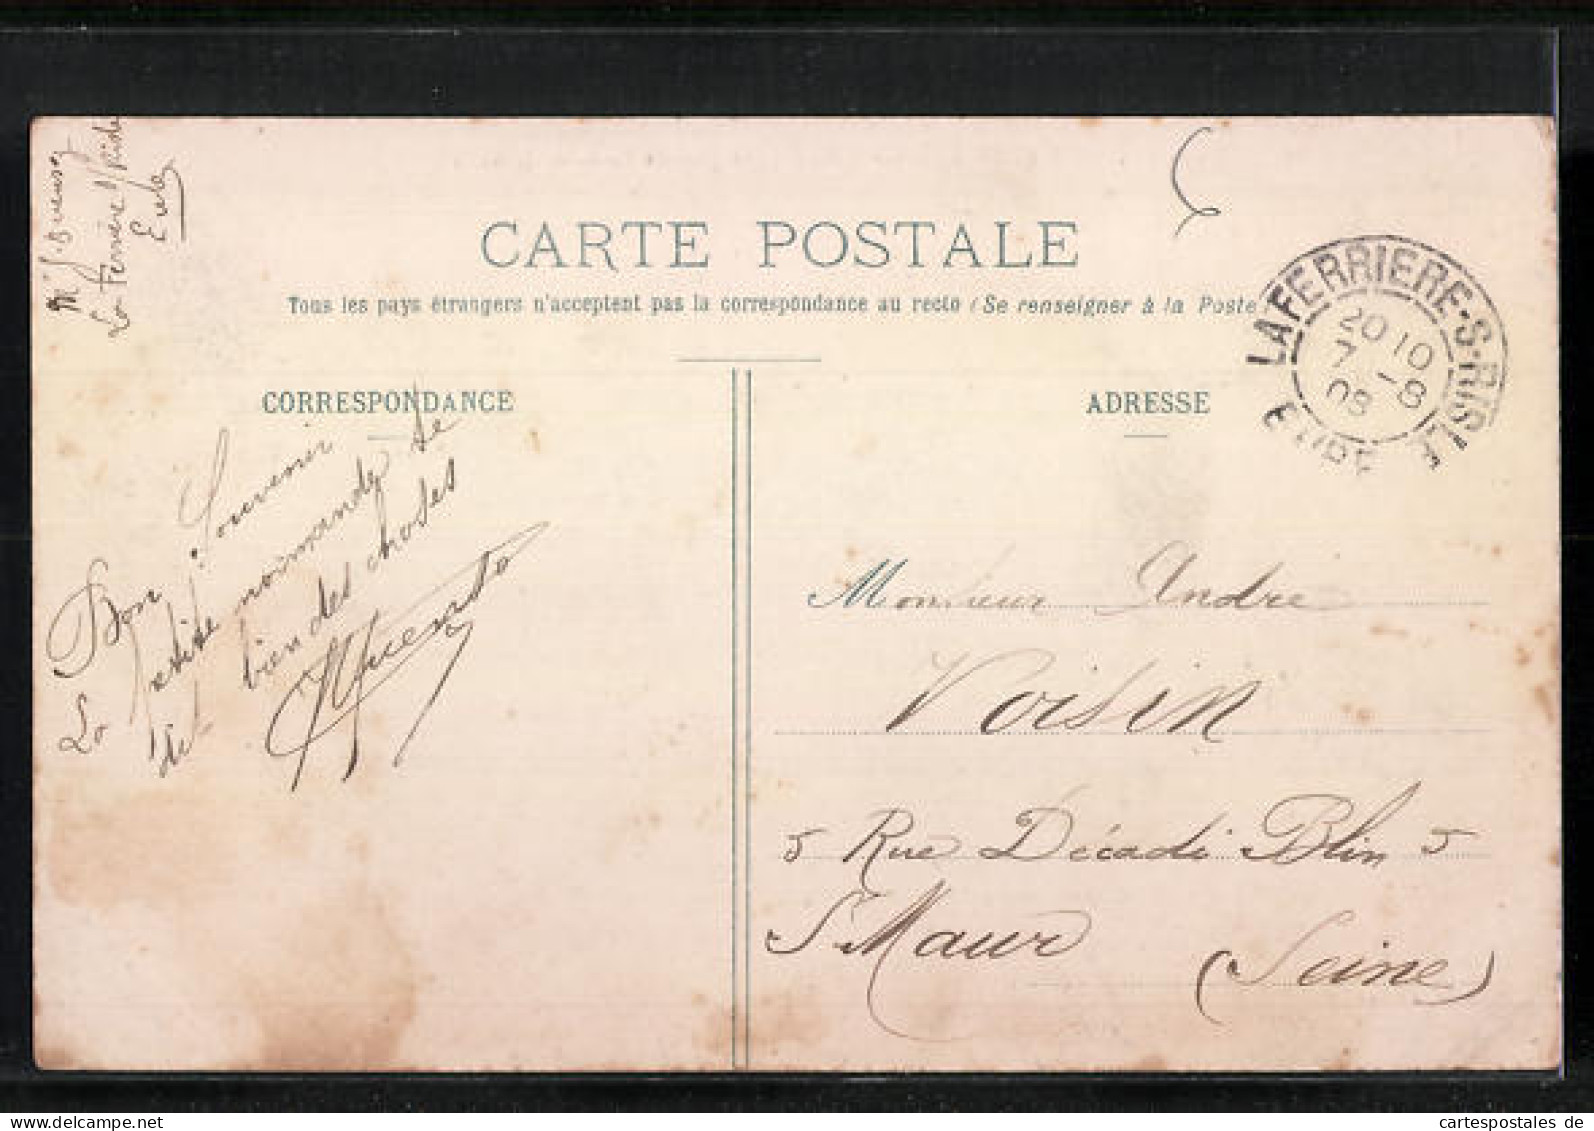 La Ferrière s/ Risle
Eure
CARTE POSTALE
Tous les pays étrangers n'acceptent pas la correspondance au recto (Se renseigner à la Poste
LA FERRIERE-S-RISLE
20 10
7 -8
08
EURE
CORRESPONDANCE
ADRESSE
Bon Souvenir
La petite normande te
dit bien des choses
Monsieur André
Voisin
5 Rue Décadi Blin 5
St Maur (Seine)
cartespostales de